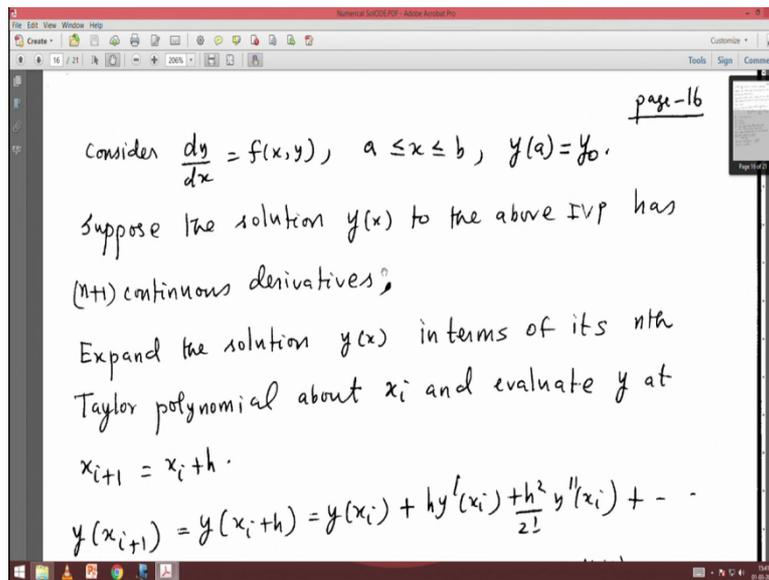 Numerical SolODE.PDF - Adobe Acrobat Pro
File Edit View Window Help
Create
Customize
16 / 21
206%
Tools Sign Comme
page-16
Page 16 of 21
Consider dy/dx = f(x,y), a ≤ x ≤ b, y(a) = y₀.
Suppose the solution y(x) to the above IVP has
(n+1) continuous derivatives;
Expand the solution y(x) in terms of its nth
Taylor polynomial about xᵢ and evaluate y at
xᵢ₊₁ = xᵢ + h.
y(xᵢ₊₁) = y(xᵢ+h) = y(xᵢ) + hy'(xᵢ) + h²/2! y''(xᵢ) + - -